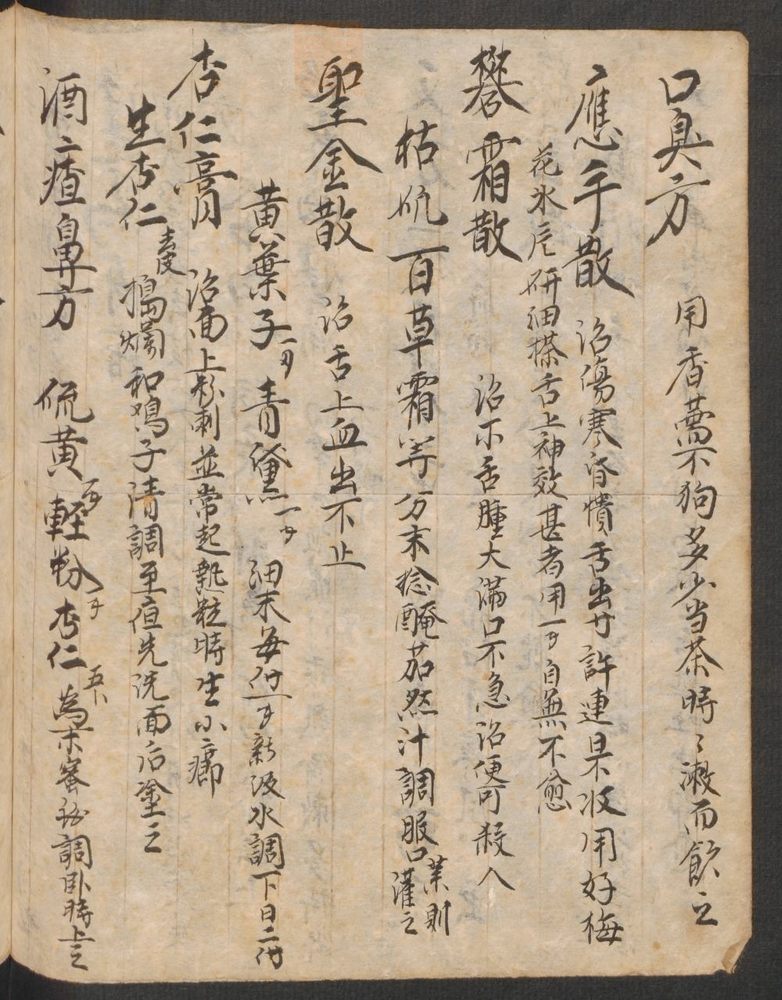 口臭方 用香薷不狗多少当茶時々漱而飲之
應手散 治傷寒昏憒舌出寸許連日不收用好梅
花氷片研細搽舌上神效甚者用一匁自無不愈
礬霜散 治木舌腫大滿口不急治便可殺人
枯矾 百草霜等分末捻醃茄然汁調服口禁則灌之
聖金散 治舌上血出不止
黄葉子一匁青黛一匁 細末每付一匁新汲水調下日二付
杏仁膏 治面上粉刺並常起㷈粒時生小癤
生杏仁去皮搗爛和鸡子清調至夜先洗面后塗之
酒齄鼻方 硫黄一匁軽粉一匁杏仁五十為末蜜調臥時上之